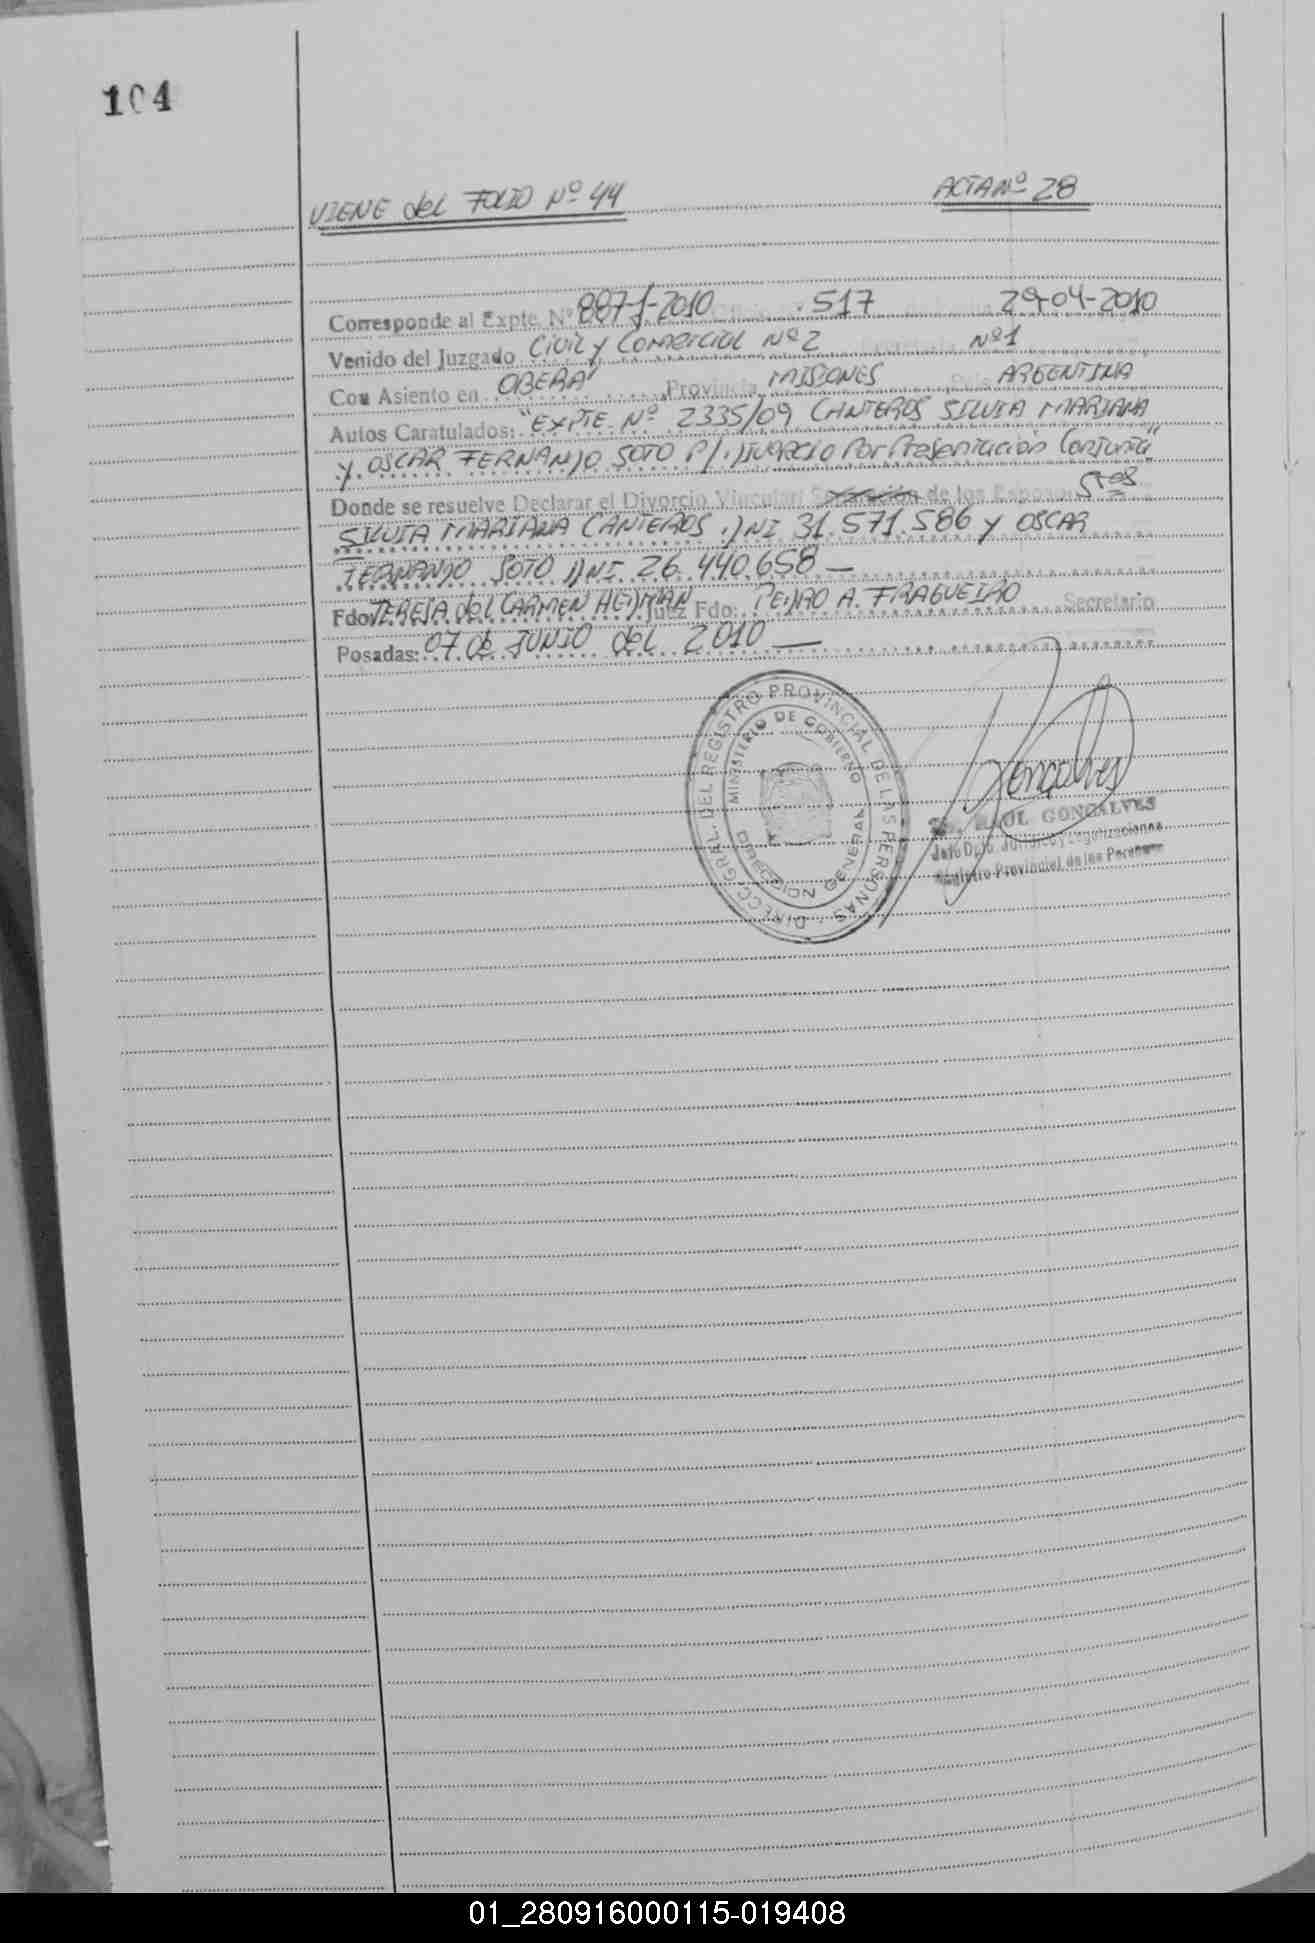 104
VIENE del FOLIO Nº 44 ACTA Nº 28
Corresponde al Expte. Nº 887-J-2010 517 29-04-2010
Venido del Juzgado Civil y Comercial Nº 2 Secretaria Nº 1
Con Asiento en OBERA Provincia MISIONES Pais ARGENTINA
Autos Caratulados: "EXPTE. Nº 2335/09 CANTEROS SILVIA MARIANA
y OSCAR FERNANDO SOTO P/ DIVORCIO Por Presentación Conjunta"
Donde se resuelve Declarar el Divorcio Vincular de los Esposos Sres
SILVIA MARIANA CANTEROS DNI 31.571.586 y OSCAR
FERNANDO SOTO DNI 26.440.658 —
Fdo TERESA del CARMEN HEDMAN Juez Fdo: PEDRO A. FRAGUEIRO Secretario
Posadas: 07 de JUNIO del 2010 —
DIRECC. GRAL. DEL REGISTRO PROVINCIAL DE LAS PERSONAS
MINISTERIO DE GOBIERNO
DIRECCION GENERAL
Goncalves
RAUL GONCALVES
Jefe Dpto. Jurídico y Legalizaciones
Registro Provincial de las Personas
01_280916000115-019408